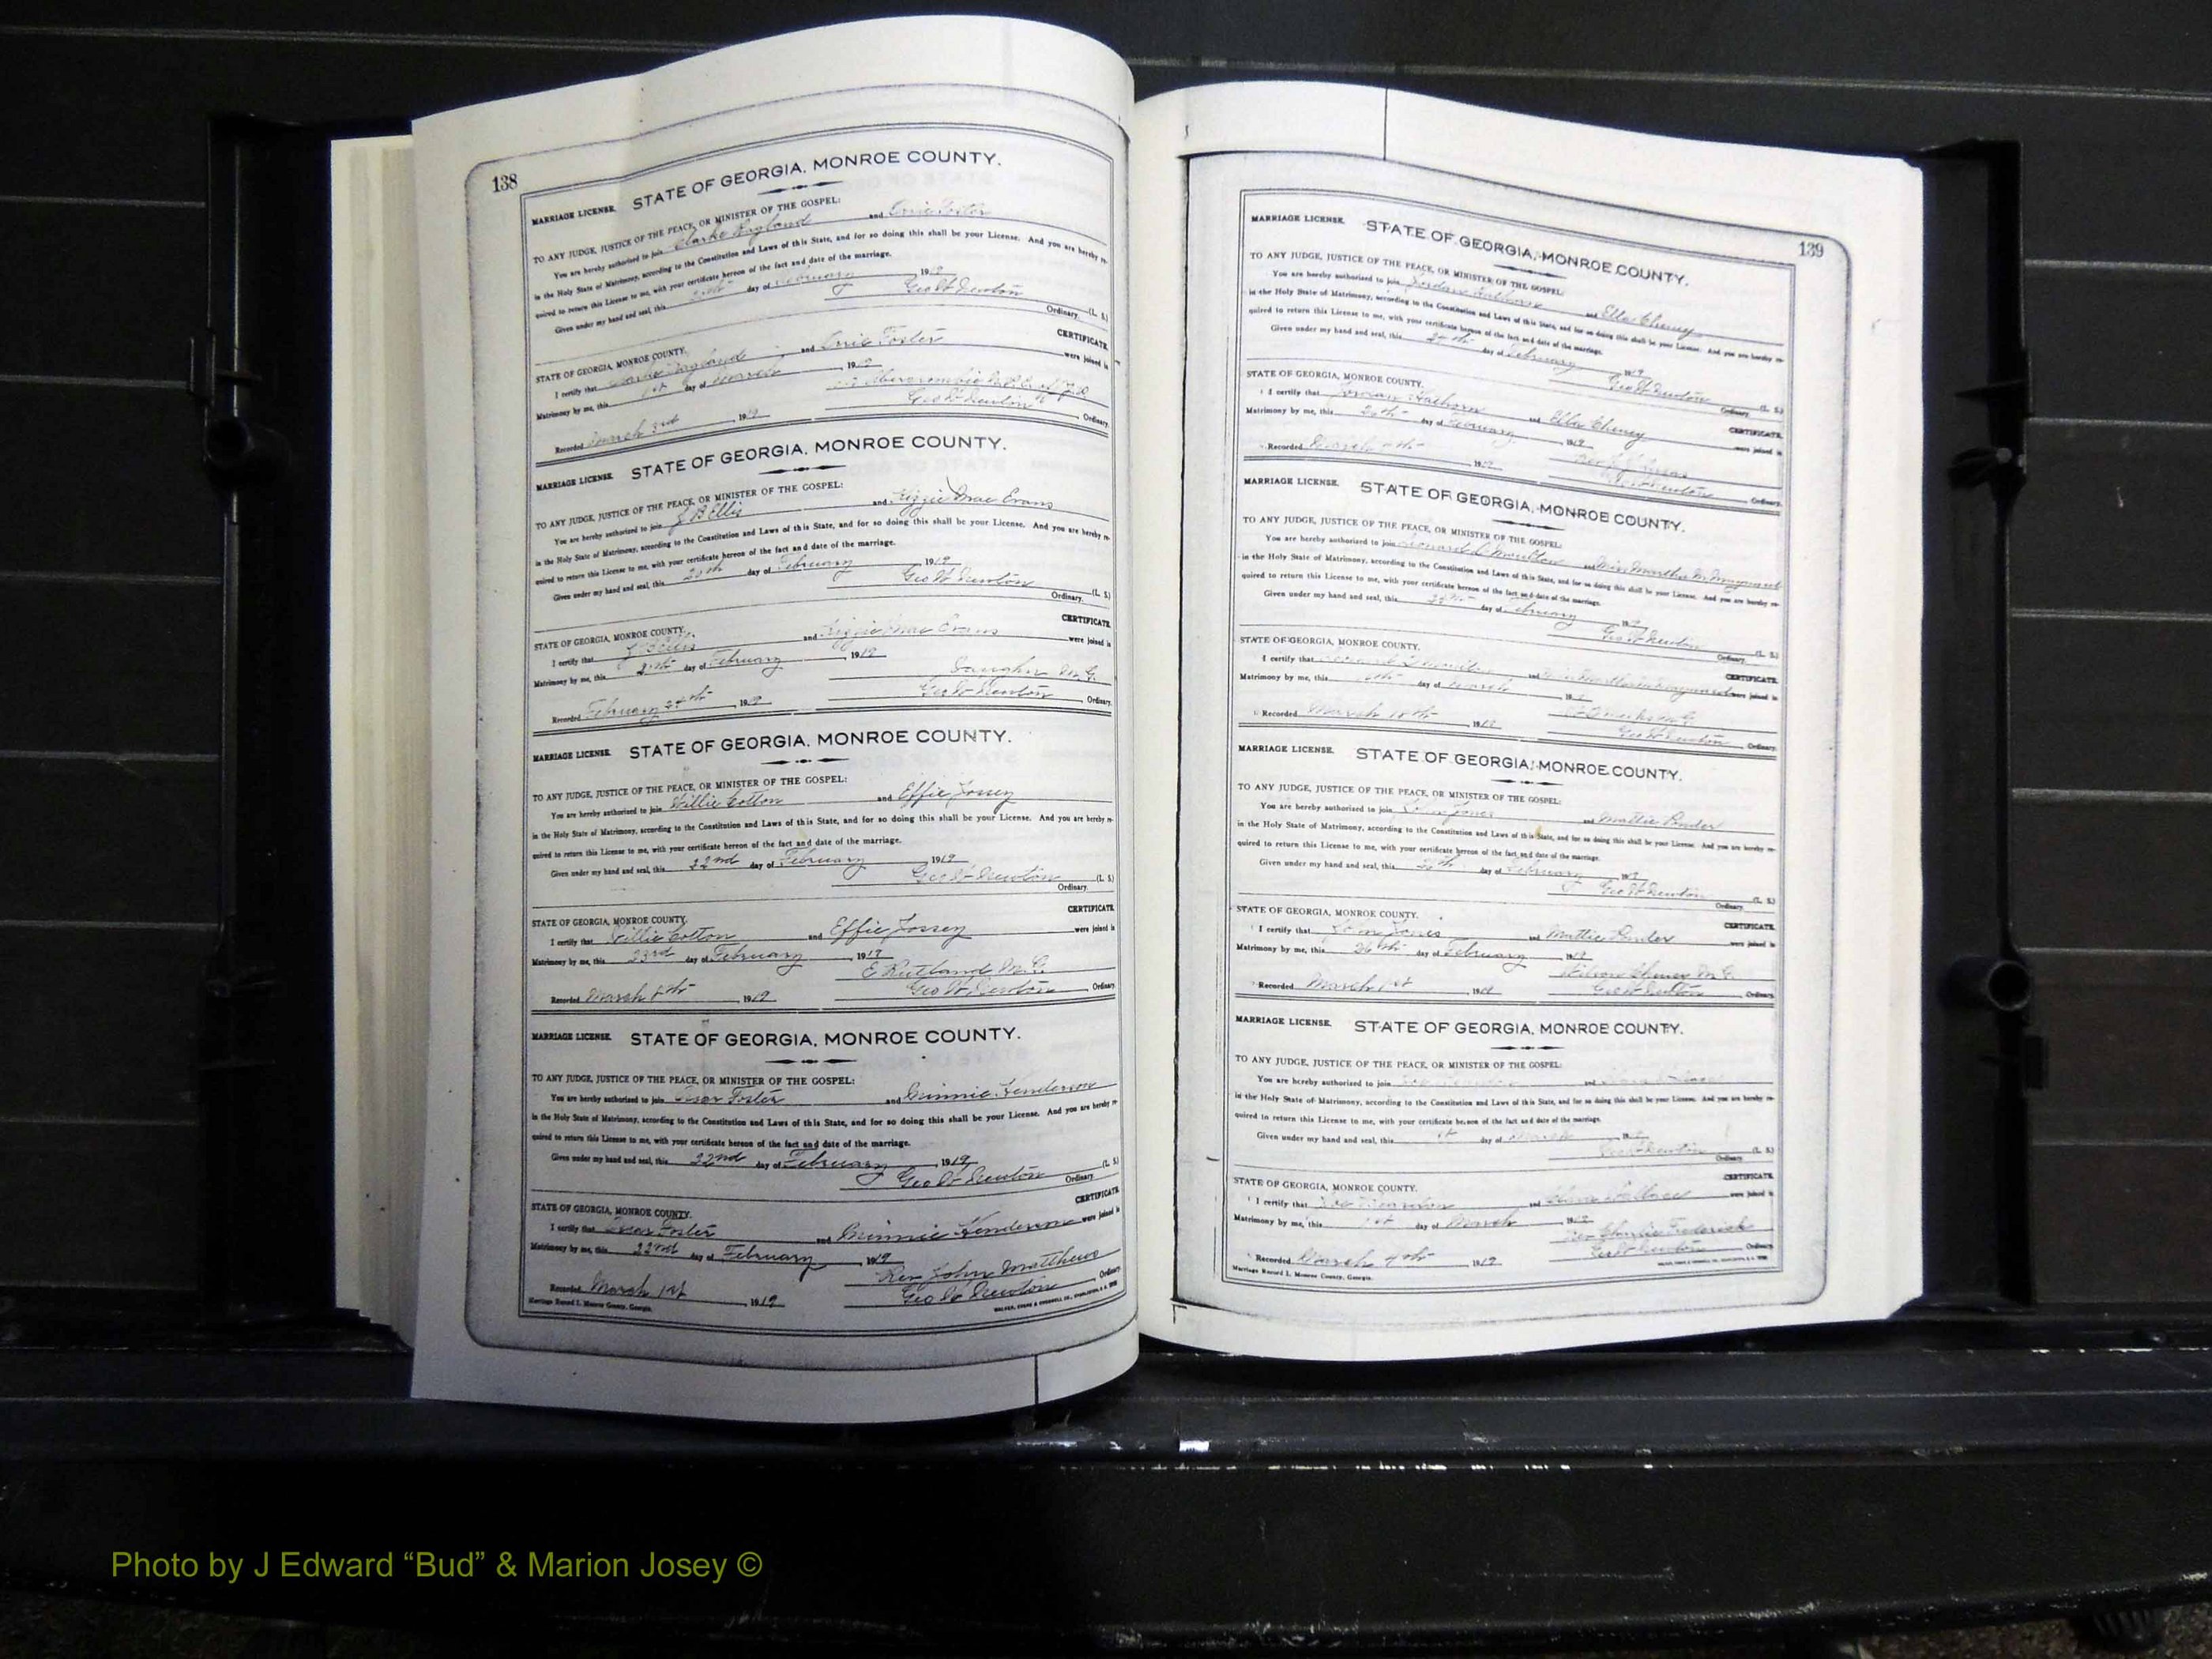 138
MARRIAGE LICENSE. STATE OF GEORGIA, MONROE COUNTY.
TO ANY JUDGE, JUSTICE OF THE PEACE, OR MINISTER OF THE GOSPEL:
You are hereby authorized to join Clarke and Foster
in the Holy State of Matrimony, according to the Constitution and Laws of this State, and for so doing this shall be your License. And you are hereby re-
quired to return this License to me, with your certificate hereon of the fact and date of the marriage.
Given under my hand and seal, this day of February 1919
Geo W Newton (L. S.)
Ordinary.
STATE OF GEORGIA, MONROE COUNTY. CERTIFICATE
I certify that and Foster were joined in
Matrimony by me, this 1st day of March, 1919
Recorded March 3rd 1919 Geo W Newton Ordinary.
MARRIAGE LICENSE. STATE OF GEORGIA, MONROE COUNTY.
TO ANY JUDGE, JUSTICE OF THE PEACE, OR MINISTER OF THE GOSPEL:
You are hereby authorized to join J B Ellis and Lizzie Mae Evans
in the Holy State of Matrimony, according to the Constitution and Laws of this State, and for so doing this shall be your License. And you are hereby re-
quired to return this License to me, with your certificate hereon of the fact and date of the marriage.
Given under my hand and seal, this 20th day of February 1919
Geo W Newton (L. S.)
Ordinary.
STATE OF GEORGIA, MONROE COUNTY. CERTIFICATE
I certify that J B Ellis and Lizzie Mae Evans were joined in
Matrimony by me, this day of February, 1919
M. G.
Recorded February 1919 Geo W Newton Ordinary.
MARRIAGE LICENSE. STATE OF GEORGIA, MONROE COUNTY.
TO ANY JUDGE, JUSTICE OF THE PEACE, OR MINISTER OF THE GOSPEL:
You are hereby authorized to join Willie Cotton and Effie Jossey
in the Holy State of Matrimony, according to the Constitution and Laws of this State, and for so doing this shall be your License. And you are hereby re-
quired to return this License to me, with your certificate hereon of the fact and date of the marriage.
Given under my hand and seal, this 22nd day of February 1919
Geo W Newton (L. S.)
Ordinary.
STATE OF GEORGIA, MONROE COUNTY. CERTIFICATE
I certify that Willie Cotton and Effie Jossey were joined in
Matrimony by me, this 23rd day of February 1919
E Rutland M. G.
Recorded March 1919 Geo W Newton Ordinary.
MARRIAGE LICENSE. STATE OF GEORGIA, MONROE COUNTY.
TO ANY JUDGE, JUSTICE OF THE PEACE, OR MINISTER OF THE GOSPEL:
You are hereby authorized to join Oscar Foster and Minnie Henderson
in the Holy State of Matrimony, according to the Constitution and Laws of this State, and for so doing this shall be your License. And you are hereby re-
quired to return this License to me, with your certificate hereon of the fact and date of the marriage.
Given under my hand and seal, this 22nd day of February 1919
Geo W Newton (L. S.)
Ordinary.
STATE OF GEORGIA, MONROE COUNTY. CERTIFICATE
I certify that Oscar Foster and Minnie Henderson were joined in
Matrimony by me, this 22nd day of February 1919
Rev John Matthews
Recorded March 1st 1919 Geo W Newton Ordinary.
Marriage Record I. Monroe County, Georgia.
139
MARRIAGE LICENSE. STATE OF GEORGIA, MONROE COUNTY.
TO ANY JUDGE, JUSTICE OF THE PEACE, OR MINISTER OF THE GOSPEL:
You are hereby authorized to join and Ella Cheney
in the Holy State of Matrimony, according to the Constitution and Laws of this State, and for so doing this shall be your License. And you are hereby re-
quired to return this License to me, with your certificate hereon of the fact and date of the marriage.
Given under my hand and seal, this day of February 1919
Geo W Newton (L. S.)
Ordinary.
STATE OF GEORGIA, MONROE COUNTY. CERTIFICATE
I certify that and Ella Cheney were joined in
Matrimony by me, this day of February 1919
Recorded March 1919 Geo W Newton Ordinary.
MARRIAGE LICENSE. STATE OF GEORGIA, MONROE COUNTY.
TO ANY JUDGE, JUSTICE OF THE PEACE, OR MINISTER OF THE GOSPEL:
You are hereby authorized to join and Miss Martha M
in the Holy State of Matrimony, according to the Constitution and Laws of this State, and for so doing this shall be your License. And you are hereby re-
quired to return this License to me, with your certificate hereon of the fact and date of the marriage.
Given under my hand and seal, this day of February 1919
Geo W Newton (L. S.)
Ordinary.
STATE OF GEORGIA, MONROE COUNTY. CERTIFICATE
I certify that and were joined in
Matrimony by me, this day of March 19
Recorded March 10th 1919 Geo W Newton Ordinary.
MARRIAGE LICENSE. STATE OF GEORGIA, MONROE COUNTY.
TO ANY JUDGE, JUSTICE OF THE PEACE, OR MINISTER OF THE GOSPEL:
You are hereby authorized to join Jones and Mattie Ponder
in the Holy State of Matrimony, according to the Constitution and Laws of this State, and for so doing this shall be your License. And you are hereby re-
quired to return this License to me, with your certificate hereon of the fact and date of the marriage.
Given under my hand and seal, this day of February 1919
Geo W Newton (L. S.)
Ordinary.
STATE OF GEORGIA, MONROE COUNTY. CERTIFICATE
I certify that Jones and Mattie Ponder were joined in
Matrimony by me, this 26th day of February 1919
M. G.
Recorded March 1st 1919 Geo W Newton Ordinary.
MARRIAGE LICENSE. STATE OF GEORGIA, MONROE COUNTY.
TO ANY JUDGE, JUSTICE OF THE PEACE, OR MINISTER OF THE GOSPEL:
You are hereby authorized to join and
in the Holy State of Matrimony, according to the Constitution and Laws of this State, and for so doing this shall be your License. And you are hereby re-
quired to return this License to me, with your certificate hereon of the fact and date of the marriage.
Given under my hand and seal, this 1st day of March, 19
Geo W Newton (L. S.)
Ordinary.
STATE OF GEORGIA, MONROE COUNTY. CERTIFICATE
I certify that and were joined in
Matrimony by me, this 1st day of March, 1919
Rev Charlie Frederick
Recorded March 4th 1919 Geo W Newton Ordinary.
Marriage Record I. Monroe County, Georgia.
Photo by J Edward “Bud” & Marion Josey ©